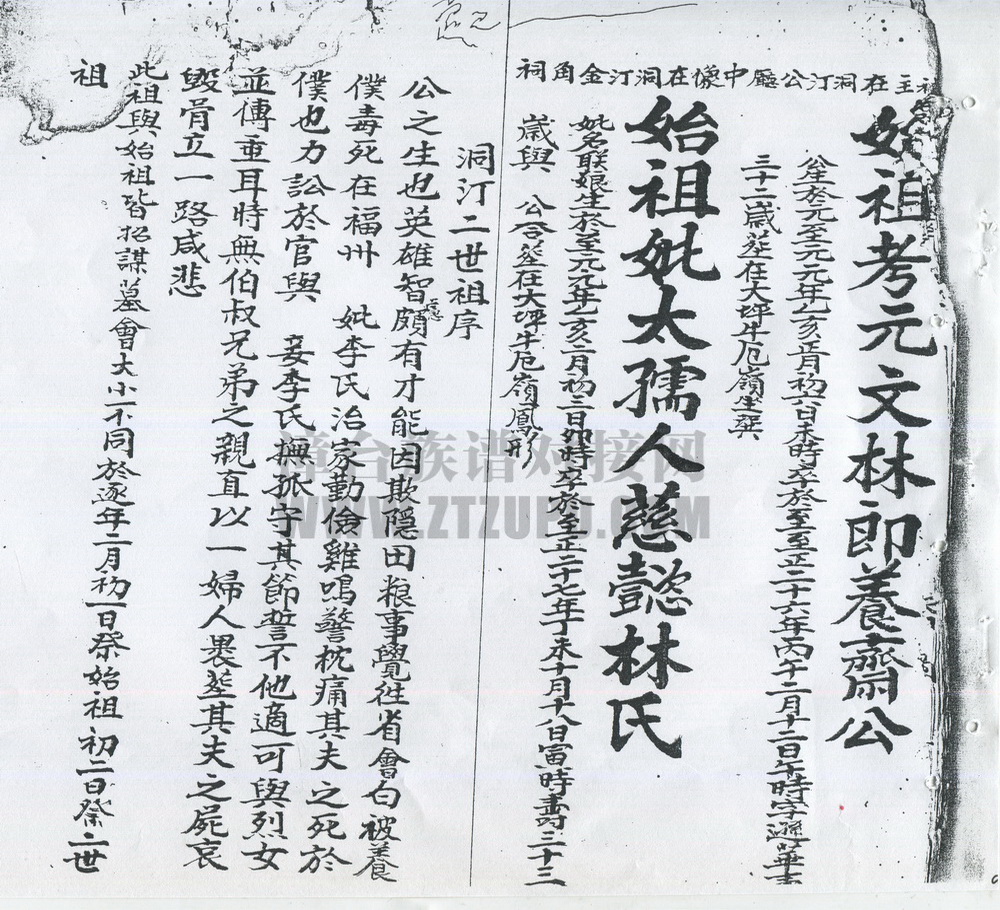 祖主在洞汀公廳中懷在洞汀金角祠
始祖考元文林郎養齋公
公生於元至元元年乙亥正月初一日未時卒於至正二十六年丙午二月十二日午時字遜
三十二歲葬在大坪牛厄嶺生𠕇
始祖妣太孺人慈懿林氏
妣名联娘生於至元元年乙亥二月初二日卯時卒於至正二十七年丁未十月十八日寅時壽三十三
歲與 公合葬在大坪牛厄嶺鳳形
洞汀二世祖序
公之生也英雄智慮頗有才能因欺隱田粮事覺往省會勾被養
僕毒死在福州 妣李氏治家勤儉雞鳴警枕痛其夫之死於
僕也力訟於官與 妾李氏撫孤守其節誓不他適可與烈女
並傳重耳時無伯叔兄弟之親直以一婦人裹塟其夫之屍哀
毀骨立一路咸悲
此祖與始祖皆招謀墓會大小不同於逐年二月初一日祭始祖初二日祭二世
祖
漳台族谱对接网
WWW.ZTZUPU.COM